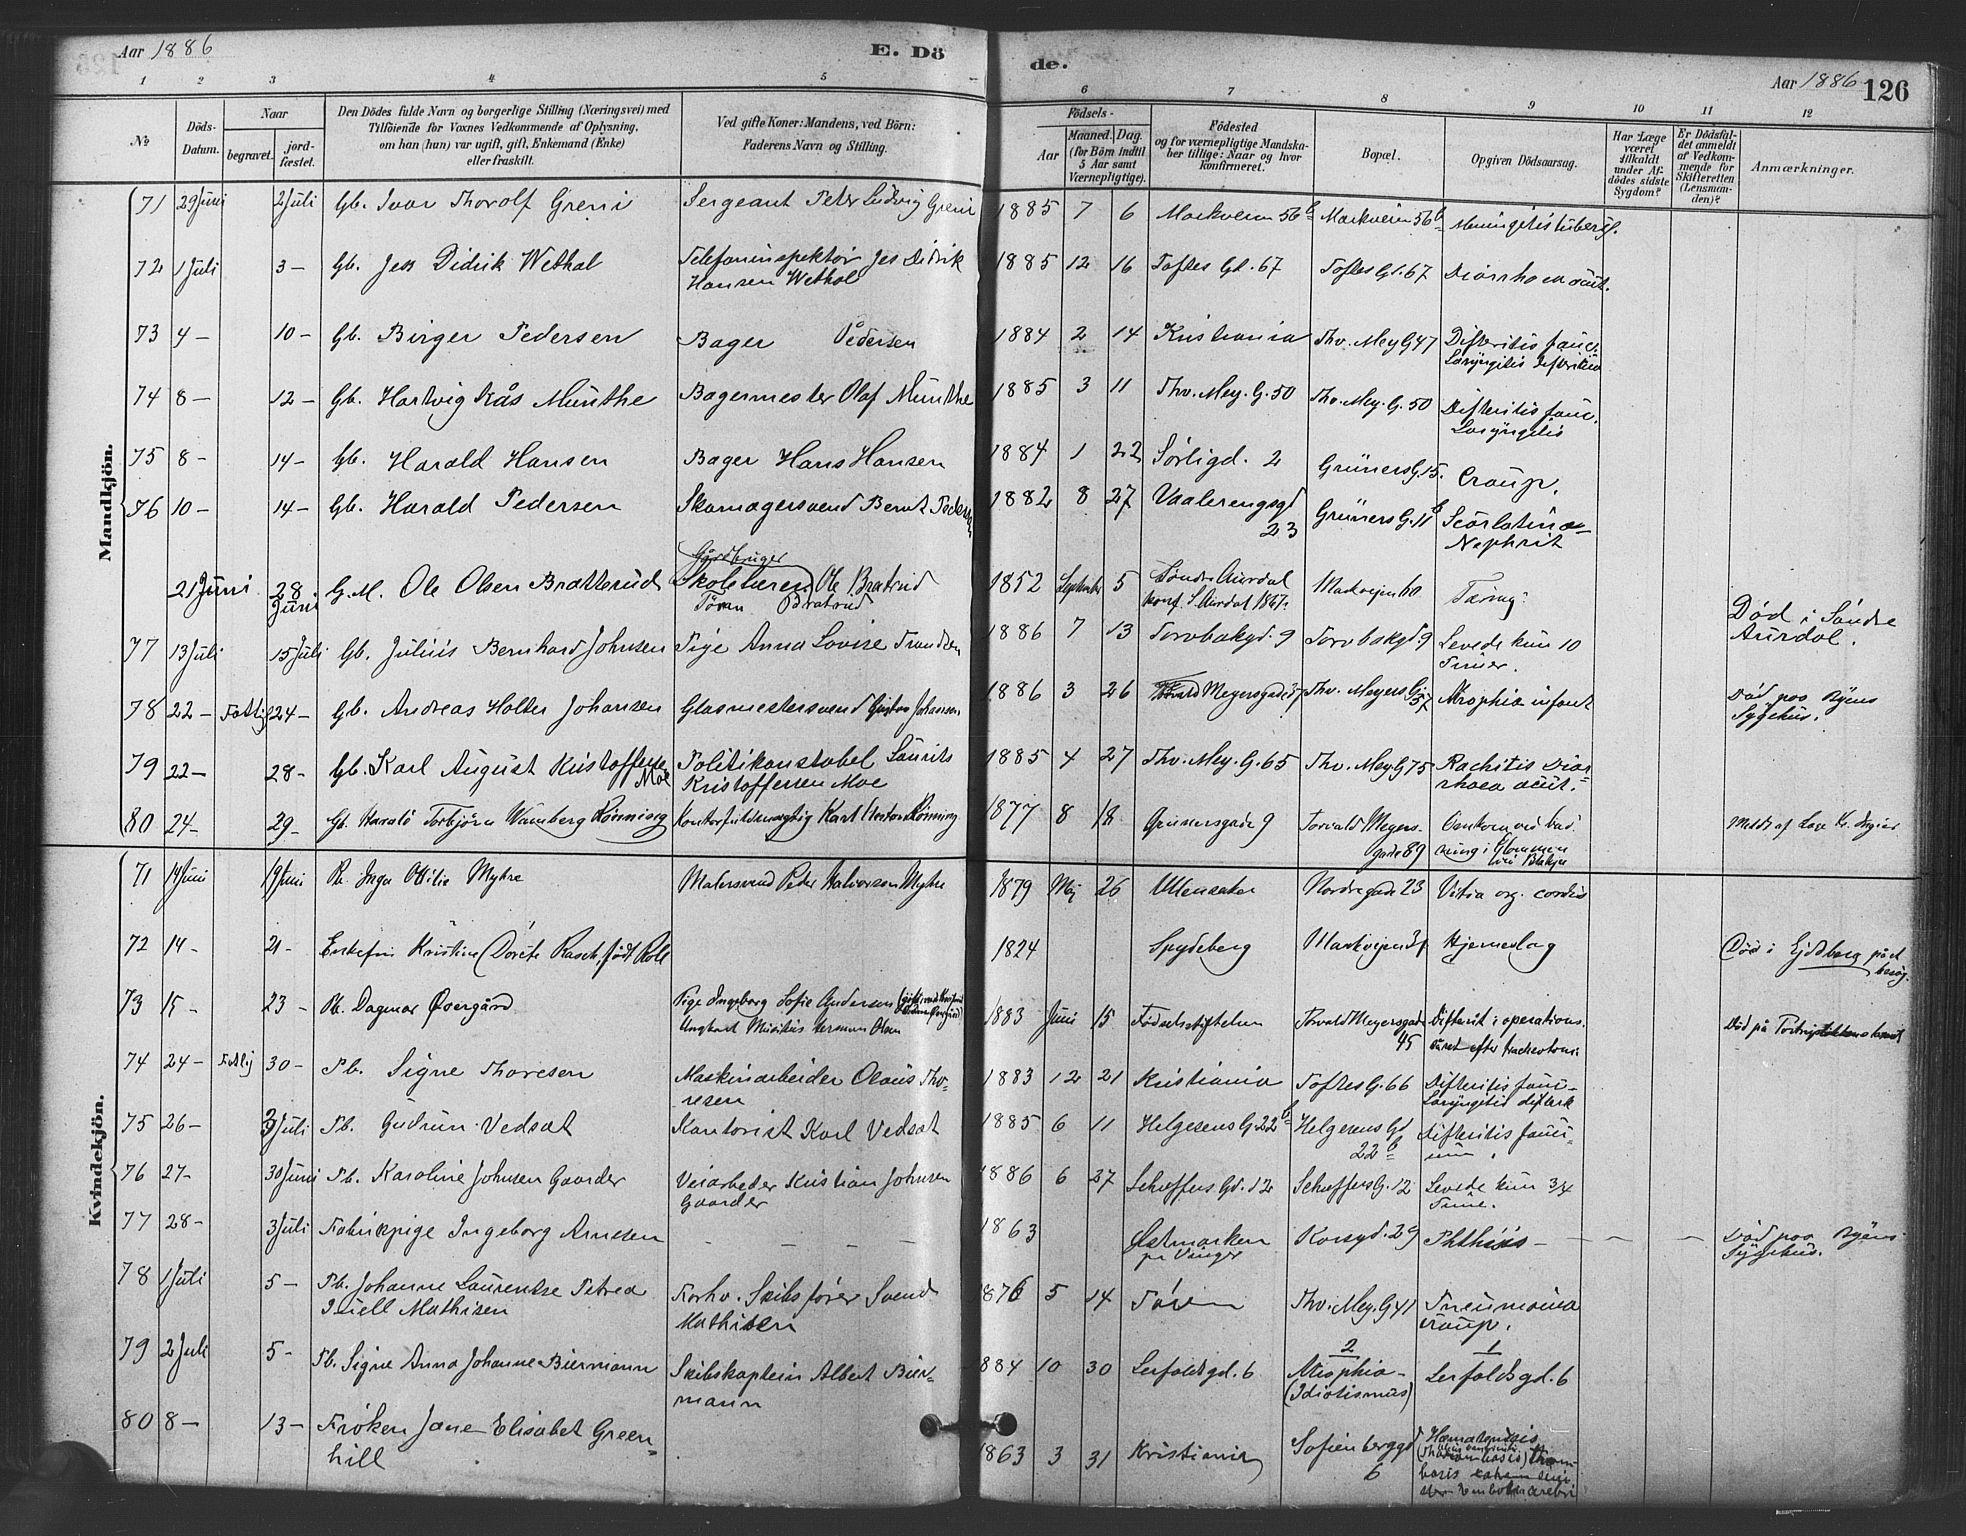 Aar 1886 E. Dö
1 2 3 4 5
№ Döds-Datum. Naar begravet. jord-fæstet. Den Dödes fulde Navn og borgerlige Stilling (Næringsvei) med Tilföiende for Voxnes Vedkommende af Oplysning, om han (hun) var ugift, gift, Enkemand (Enke) eller fraskilt. Ved gifte Koner: Mandens, ved Börn: Faderens Navn og Stilling.
Mandkjön.
71 29 Juni 2 Juli Gb. Ivar Thorolf Greni Sergeant Peter Ludvig Greni
72 1 Juli 3 — Gb. Jes Didrik Wethal Telefoninspektör Jes Didrik
Hansen Wethal
73 4 — 10 — Gb. Birger Pedersen Bager Pedersen
74 8 — 12 — Gb. Hartvig Kås Munthe Bagermester Olaf Munthe
75 8 — 14 — Gb. Harald Hansen Bager Hans Hansen
76 10 — 14 — Gb. Harald Pedersen Skomagersvend Bernt Pedersen
Gårdbruger
21 Juni 28 Juni G.M. Ole Olsen Bratterud Skolelærer Ole Bratrud
Bratrud
77 13 Juli 15 Juli Gb. Julius Bernhard Johnsen Pige Anna Lovise Trondsen
78 22 — Fattig 24 — Gb. Andreas Holter Johansen Glasmestersvend Gustav Johansen
79 22 — 28 — Gb. Karl August Kristoffersen Moe Politikonstabel Laurits
Kristoffersen Moe
80 24 — 29 — Gb. Harald Torbjörn Wamberg Rönning Kontorfuldmægtig Karl Rönning
Kvindekjön.
71 14 Juni 19 Juni Pb. Inga Otilie Myhre Malersvend Peder Halvorsen Myhre
72 14 — 21 — Enkefru Kristine Dorete Rasch, født
73 15 — 23 — Pb. Dagmar Øvergård Pige Ingeborg Sofie Andersen
Ungkarl Musikus Herman Olsen
74 24 — Fattig 30 — Pb. Signe Thoresen Maskinarbeider Olaus Tho-
resen
75 26 — 3 Juli Pb. Gudrun Vedsat Kontorist Karl Vedsat
76 27 — 30 Juni Pb. Karoline Johnsen Gaarder Veiarbeder Kristian Johnsen
Gaarder
77 28 — 3 Juli Fabrikpige Ingeborg Arnesen — — — —
78 1 Juli 5 — Pb. Johanne Laurentse Petrea Forhv. Skibsfører Svend
Mathisen Mathisen
79 2 Juli 5 — Pb. Signe Anna Johanne Biermann Skibskaptein Albert Bier-
mann
80 8 — 13 — Frøken Jane Elisabet Green-
hill
de. Aar 1886 126
6 7 8 9 10 11 12
Födsels- Aar Maaned. Dag. (for Börn indtil 5 Aar samt Værnepligtige). Födested og for værnepligtige Mandskaber tillige: Naar og hvor konfirmeret. Bopæl. Opgiven Dödsaarsag. Har Læge været tilkaldt under Afdödes sidste Sygdom? Er Dödsfaldet anmeldt af Vedkommende for Skifteretten (Lensmanden)? Anmærkninger.
1885 7 6 Markveien 56 b Markveien 56 b Meningitis tubercl.
1885 12 16 Toftes Gd. 67 Toftes Gd. 67 Diarrhoea acut.
1884 2 14 Kristiania Thv. Mey G 47 Difteritis fauc.
Laryngitis
1885 3 11 Thv. Mey. G. 50 Thv. Mey. G. 50 Difteritis fauc.
Laryngitis
1884 1 22 Sørligd. 2 Grüners G. 15. Croup.
1882 8 27 Vaalerengsgd 23 Grüners G. 11 b Scarlatina-
Nephrit
1852 September 5 Søndre Aurdal
konf. S. Aurdal 1867. Markveien 60 Tæring. Død i Søndre
Aurdal.
1886 7 13 Torvbakgd. 9 Torvbakgd 9 Levede kun 10
Timer.
1886 3 26 Thorvald Meyersgade 37 Thv. Meyers G. 37 Atrophia infant Død paa Byens
Sygehus.
1885 4 27 Thv. Mey. G. 65 Thv. Mey G 75 Rachitis Diar-
rhoea acut.
1877 8 18 Grünersgade 9 Torvald Meyers-
gade 89 Omkom ved bad-
ning i Glommen
1879 Mai 26 Ullensaker Nordregade 23 Vitia org. cordis
1824 Spydeberg Markveien Hjerneslag Død i Eidsberg på et
besøg.
1883 Juni 15 Fødselsstiftelsen Torvald Meyersgade
45 Difterit i operations-
såret efter tracheotomi
1883 12 21 Kristiania Toftes G. 66 Difteritis fauc-
Laryngitis
1885 6 11 Helgesens G. 22 b Helgesens Gd
22 b Difteritis fauci-
um.
1886 6 27 Schæffers Gd. 12 Schæffers G. 12 Levede kun 3/4
Time.
1863 Østmarken
pr Vinger Korsgd. 29 Phthisis — — — — Død paa Byens
Sygehus.
1876 5 14 Thv. Mey. G 41 Pneumonia
croup.
1884 10 30 Lerfaldsgd. 6 2 Atrophia-
(Idiotismus) 1 Lerfaldsgd. 6
1863 3 31 Kristiania Sofienberggd
6